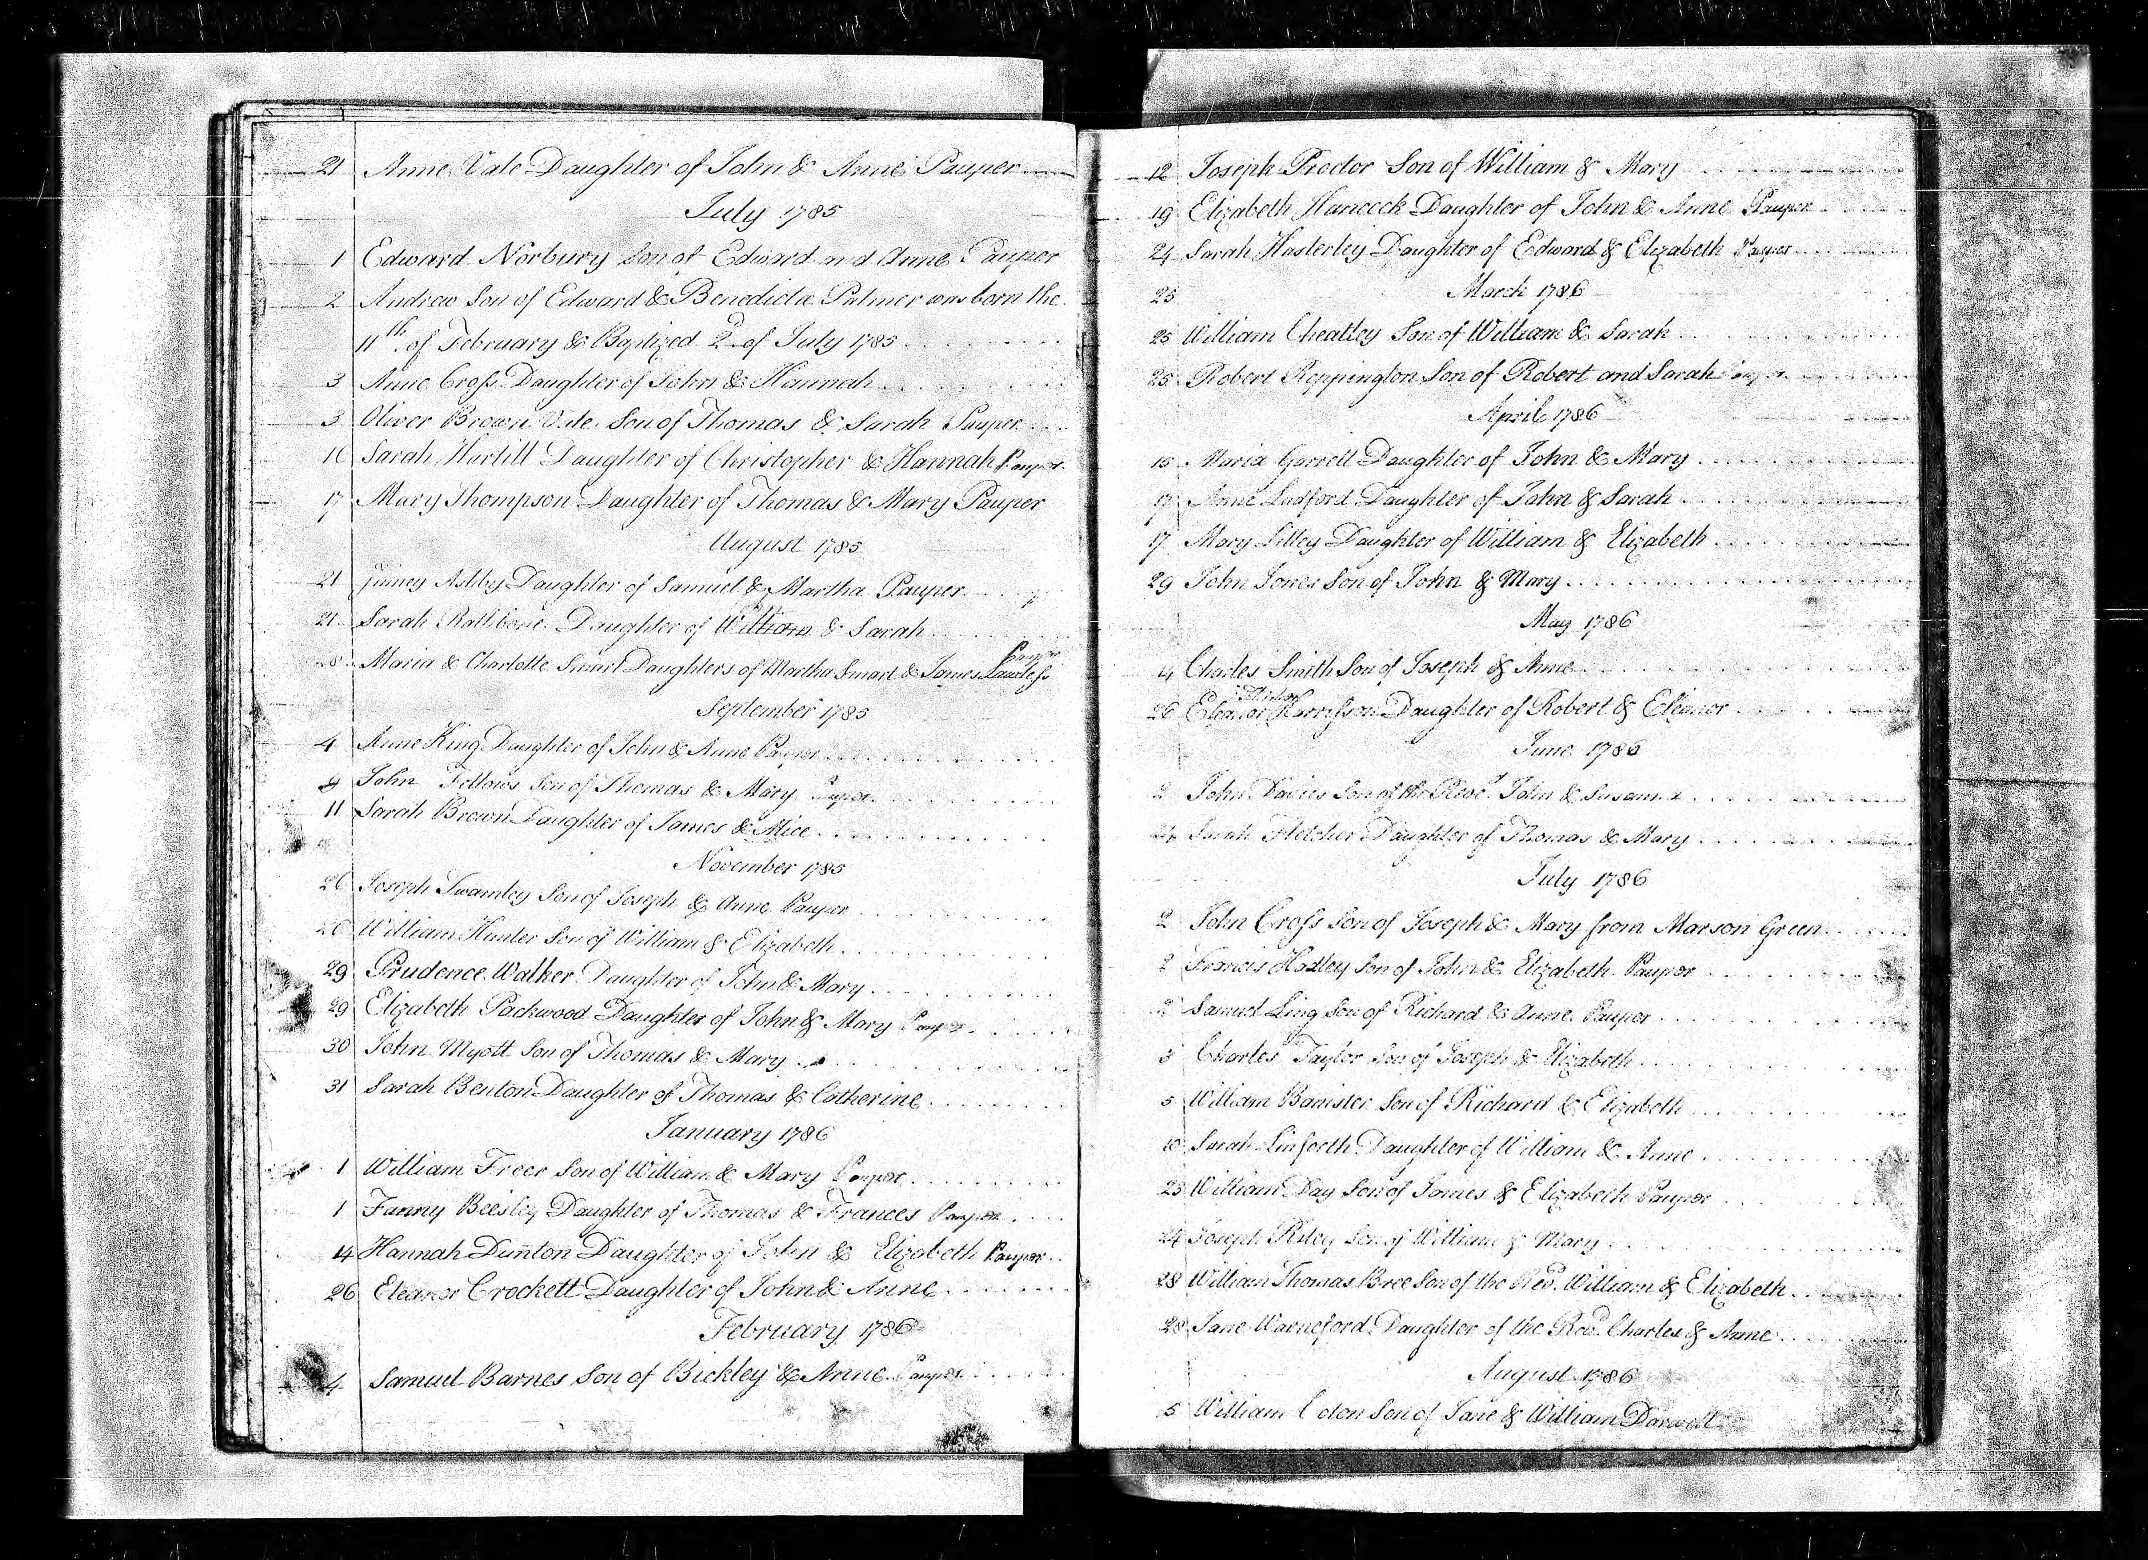 21 Anne Vale Daughter of John & Anne Pauper
July 1785
1 Edward Norbury Son of Edward and Anne Pauper
2 Andrew Son of Edward & Benedicta Palmer was born the
11th of February & Baptized 2d of July 1785
3 Anne Cross Daughter of John & Hannah
3 Oliver Brown Vale Son of Thomas & Sarah Pauper
16 Sarah Hartill Daughter of Christopher & Hannah Pauper
17 Mary Thompson Daughter of Thomas & Mary Pauper
August 1785
21 Ashby Daughter of Samuel & Martha Pauper
21 Sarah Rathbone Daughter of William & Sarah
28 Maria & Charlotte Smart Daughters of Martha Smart & James Lawless Pauper
September 1785
4 Anne King Daughter of John & Anne Pauper
John Fellows Son of Thomas & Mary Pauper
11 Sarah Brown Daughter of James & Alice
November 1785
26 Joseph Swamley Son of Joseph & Anne Pauper
26 William Hunter Son of William & Elizabeth
29 Prudence Walker Daughter of John & Mary
29 Elizabeth Packwood Daughter of John & Mary Pauper
30 John Myott Son of Thomas & Mary
31 Sarah Benton Daughter of Thomas & Catherine
January 1786
1 William Freer Son of William & Mary Pauper
1 Fanny Beesley Daughter of Thomas & Frances Pauper
14 Hannah Dunton Daughter of John & Elizabeth Pauper
26 Eleanor Crockett Daughter of John & Anne
February 1786
4 Samuel Barnes Son of Bickley & Anne Pauper
12 Joseph Proctor Son of William & Mary
19 Elizabeth Hancock Daughter of John & Anne Pauper
24 Sarah Hasterley Daughter of Edward & Elizabeth Pauper
25 March 1786
25 William Cheatley Son of William & Sarah
25 Robert Reppington Son of Robert and Sarah Pauper
April 1786
15 Maria Garrett Daughter of John & Mary
17 Anne Ludford Daughter of John & Sarah
17 Mary Lilley Daughter of William & Elizabeth
29 John Jones Son of John & Mary
May 1786
4 Charles Smith Son of Joseph & Anne
26 Eleanor Harrisson Daughter of Robert & Eleanor
June 1786
2 John Davies Son of the Revd. John & Susanna
24 Sarah Fletcher Daughter of Thomas & Mary
July 1786
2 John Cross Son of Joseph & Mary from Marson Green
2 Francis Hadley Son of John & Elizabeth Pauper
2 Samuel Ling Son of Richard & Anne Pauper
3 Charles Taylor Son of Joseph & Elizabeth
5 William Banister Son of Richard & Elizabeth
10 Sarah Linforth Daughter of William & Anne
23 William Day Son of James & Elizabeth Pauper
24 Joseph Riley Son of William & Mary
28 William Thomas Bree Son of the Revd. William & Elizabeth
28 Jane Warneford Daughter of the Revd. Charles & Anne
August 1786
5 William Son of Jane & William Darwell